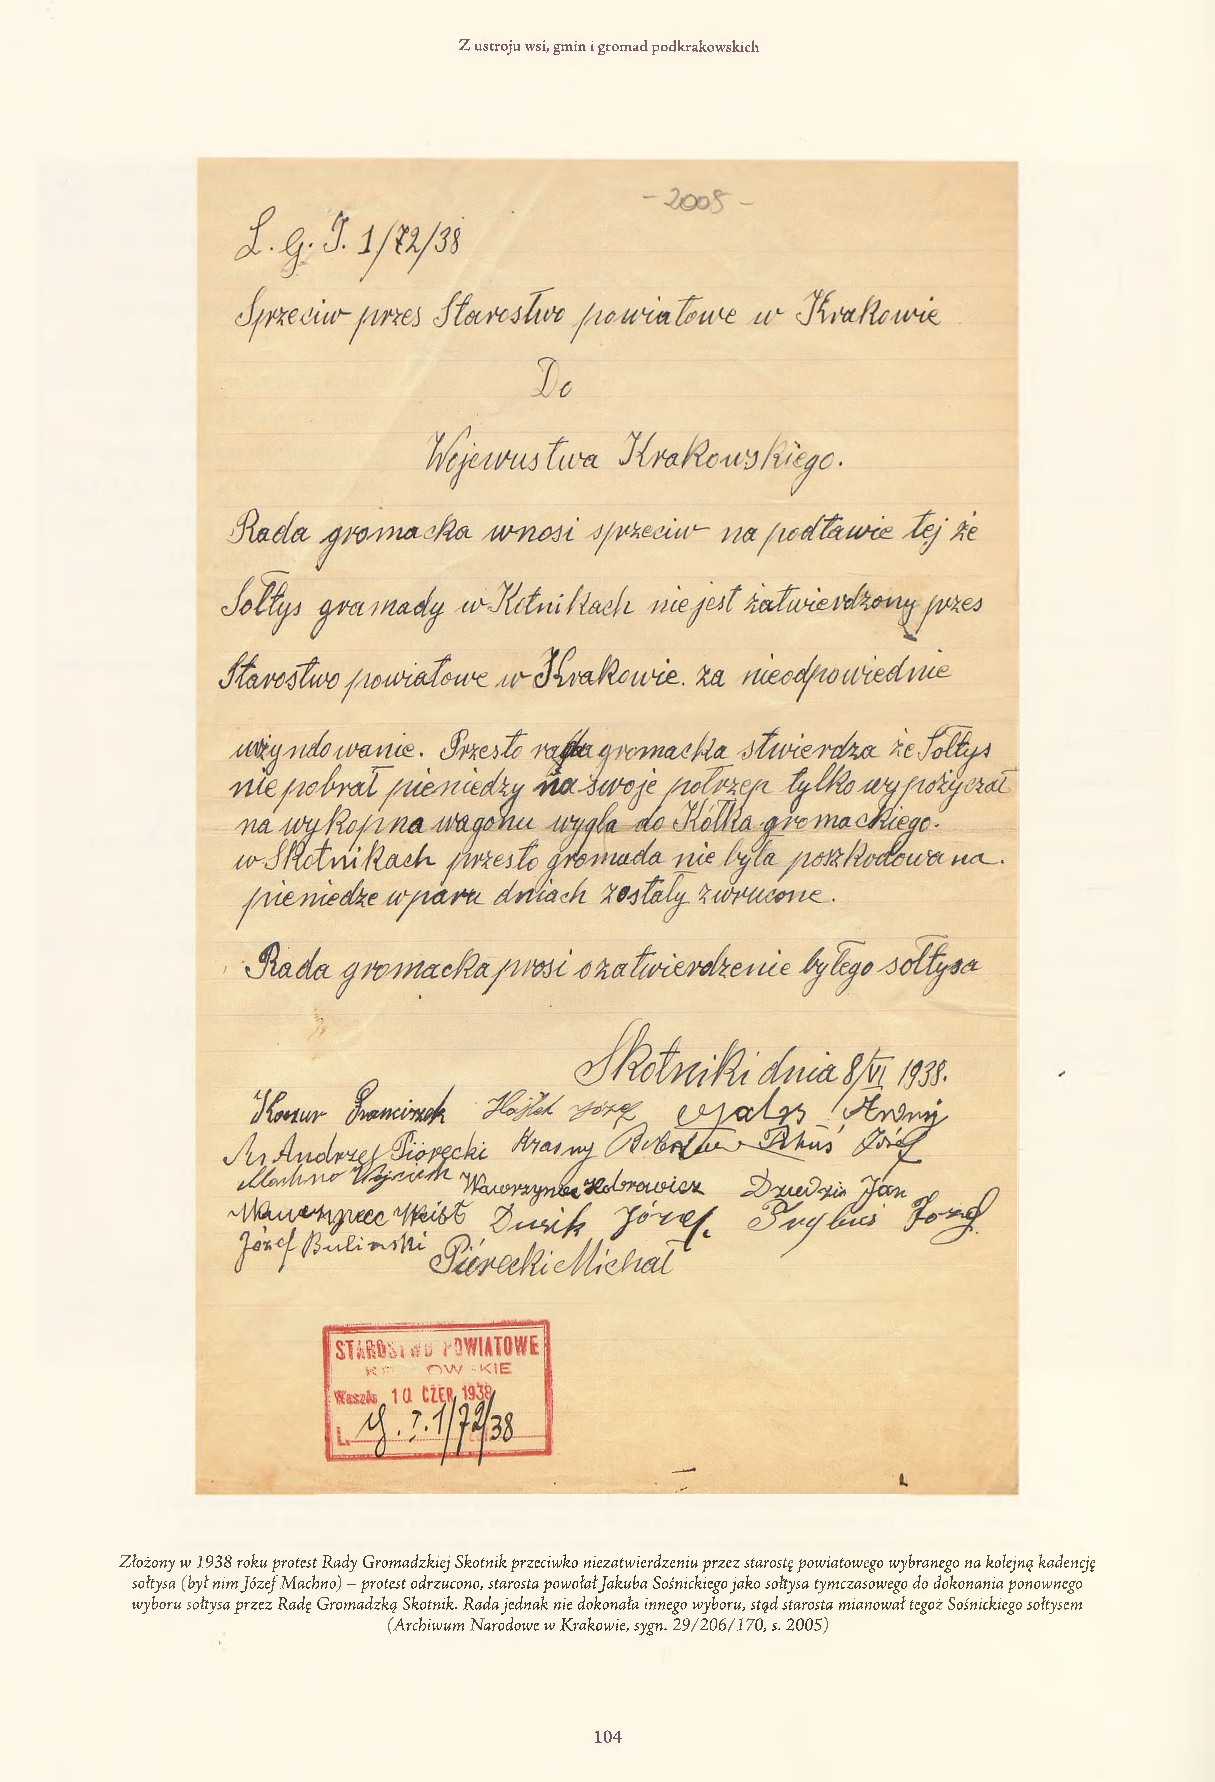 Z ustroju wsi, gmin i gromad podkrakowskich
- 2005 -
L. G. I. 1/72/38
Sprzeciw przes Starostwo powiatowe w Krakowie
Do
Wojewustwa Krakowskiego.
Rada gromacka wnosi sprzeciw na podtawie tej że
Sołtys gramady w Kotnikach nie jest żatwierdzony przes
Starostwo powiatowe w Krakowie. za nieodpowiednie
użyndowanie. Przesto rada gromacka stwierdza że Sołtys
nie pobrał pieniedzy na swoje potrzep tylko wypożyczał
na wykopna wagonu wygla do Kółka gromackiego.
w Skotnikach przesto gromada nie była poszkodowana.
pieniedze w paru dniach zostały zwrucone.
Rada gromacka prosi o zatwierdzenie byłego sołtysa
Skotniki dnia 8/VI 1938.
Franciszek Józef
Andrzej Piórecki Krasny Józef
Machno Wojciech Wawrzyniec Jan
Wawrzyniec Dusik Józef. Józef
Józef Bulinski
Piórecki Michał
STAROSTWO POWIATOWE
KRAKOWSKIE
Weszło 10 CZER. 1938
L. G. I. 1/72/38
Złożony w 1938 roku protest Rady Gromadzkiej Skotnik przeciwko niezatwierdzeniu przez starostę powiatowego wybranego na kolejną kadencję
sołtysa (był nim Józef Machno) – protest odrzucono, starosta powołał Jakuba Sośnickiego jako sołtysa tymczasowego do dokonania ponownego
wyboru sołtysa przez Radę Gromadzką Skotnik. Rada jednak nie dokonała innego wyboru, stąd starosta mianował tegoż Sośnickiego sołtysem
(Archiwum Narodowe w Krakowie, sygn. 29/206/170, s. 2005)
104